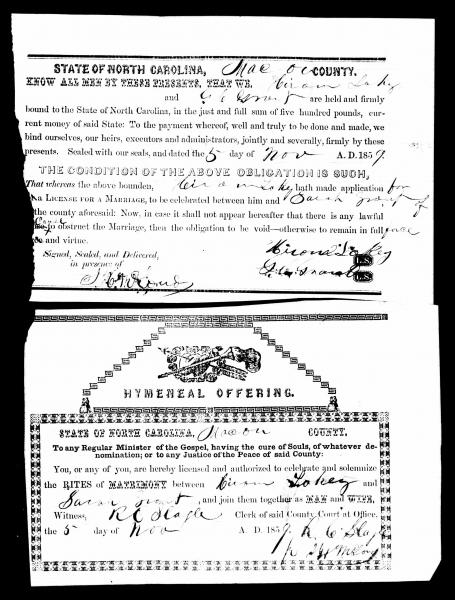 STATE OF NORTH CAROLINA, Macon COUNTY.
KNOW ALL MEN BY THESE PRESENTS, THAT WE, Hiram Lokey
and are held and firmly
bound to the State of North Carolina, in the just and full sum of five hundred pounds, cur-
rent money of said State: To the payment whereof, well and truly to be done and made, we
bind ourselves, our heirs, executors and administrators, jointly and severally, firmly by these
presents. Sealed with our seals, and dated the 5 day of Nov A. D. 1857.
THE CONDITION OF THE ABOVE OBLIGATION IS SUCH,
That whereas the above bounden, Hiram Lokey hath made application for
A LICENSE FOR A MARRIAGE, to be celebrated between him and Sarah Grant of
the county aforesaid: Now, in case it shall not appear hereafter that there is any lawful
Cause to obstruct the Marriage, then the obligation to be void—otherwise to remain in full force
and virtue.
Signed, Sealed, and Delivered,
in presence of
Hiram Lokey
LS
LS
HYMENEAL OFFERING.
STATE OF NORTH CAROLINA, Macon COUNTY.
To any Regular Minister of the Gospel, having the cure of Souls, of whatever de-
nomination; or to any Justice of the Peace of said County:
You, or any of you, are hereby licensed and authorized to celebrate and solemnize
the RITES OF MATRIMONY between Hiram Lokey and
Sarah Grant, and join them together as MAN and WIFE,
Witness, R C Slagle Clerk of said County Court at Office.
the 5 day of Nov A. D. 1857. R C Slagle